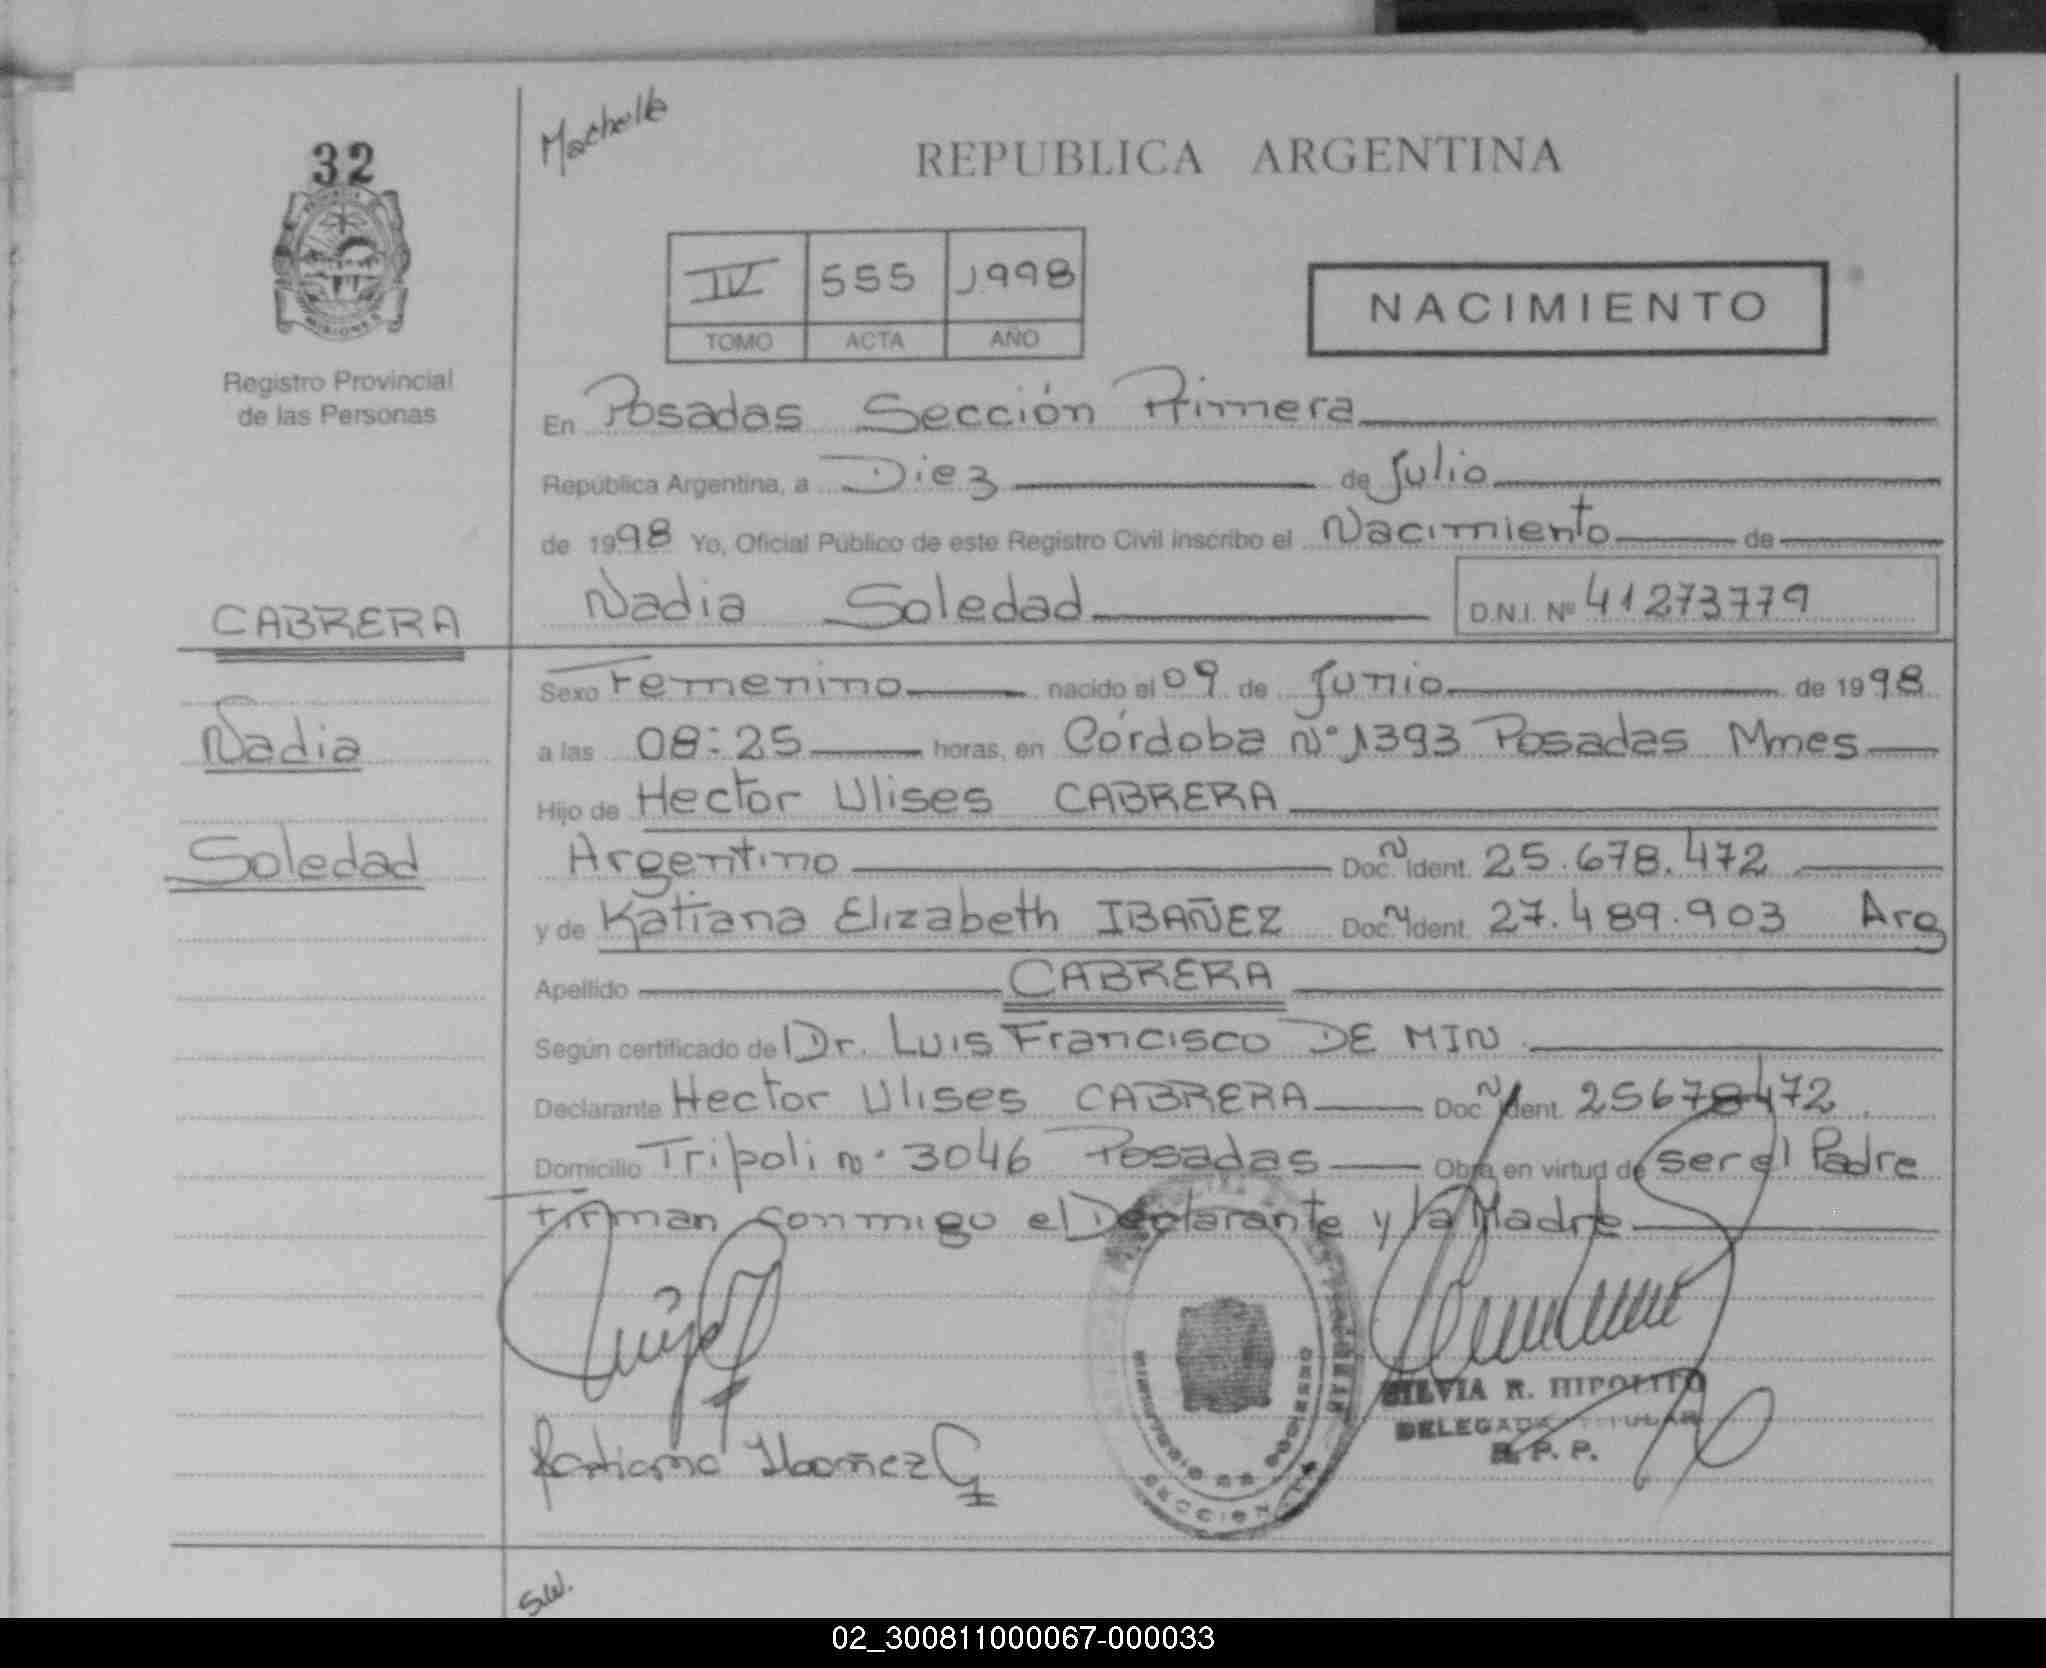 Machelk
32
MISIONES
Registro Provincial
de las Personas
REPUBLICA ARGENTINA
IV 555 1998
TOMO ACTA AÑO
NACIMIENTO
En Posadas Sección Primera
República Argentina, a Diez de Julio
de 1998 Yo, Oficial Público de este Registro Civil inscribo el Nacimiento de
Nadia Soledad D.N.I. Nº 41273779
CABRERA
Nadia
Soledad
Sexo Femenino nacido el 09 de Junio de 1998
a las 08:25 horas, en Córdoba Nº 1393 Posadas Mnes
Hijo de Hector Ulises CABRERA
Argentino Doc. N Ident. 25.678.472
y de Katiana Elizabeth IBAÑEZ Doc. N Ident. 27.489.903 Arg
Apellido CABRERA
Según certificado de Dr. Luis Francisco DE MIN
Declarante Hector Ulises CABRERA Doc. N Ident. 25678472
Domicilio Tripoli nº 3046 Posadas Obra en virtud de ser el Padre
Firman conmigo el Declarante y la Madre
SILVIA R. HIPOLITO
DELEGADA TITULAR
R. P. P.
Katiana Ibañez G
SECCION 1ra
S.W.
02_300811000067-000033